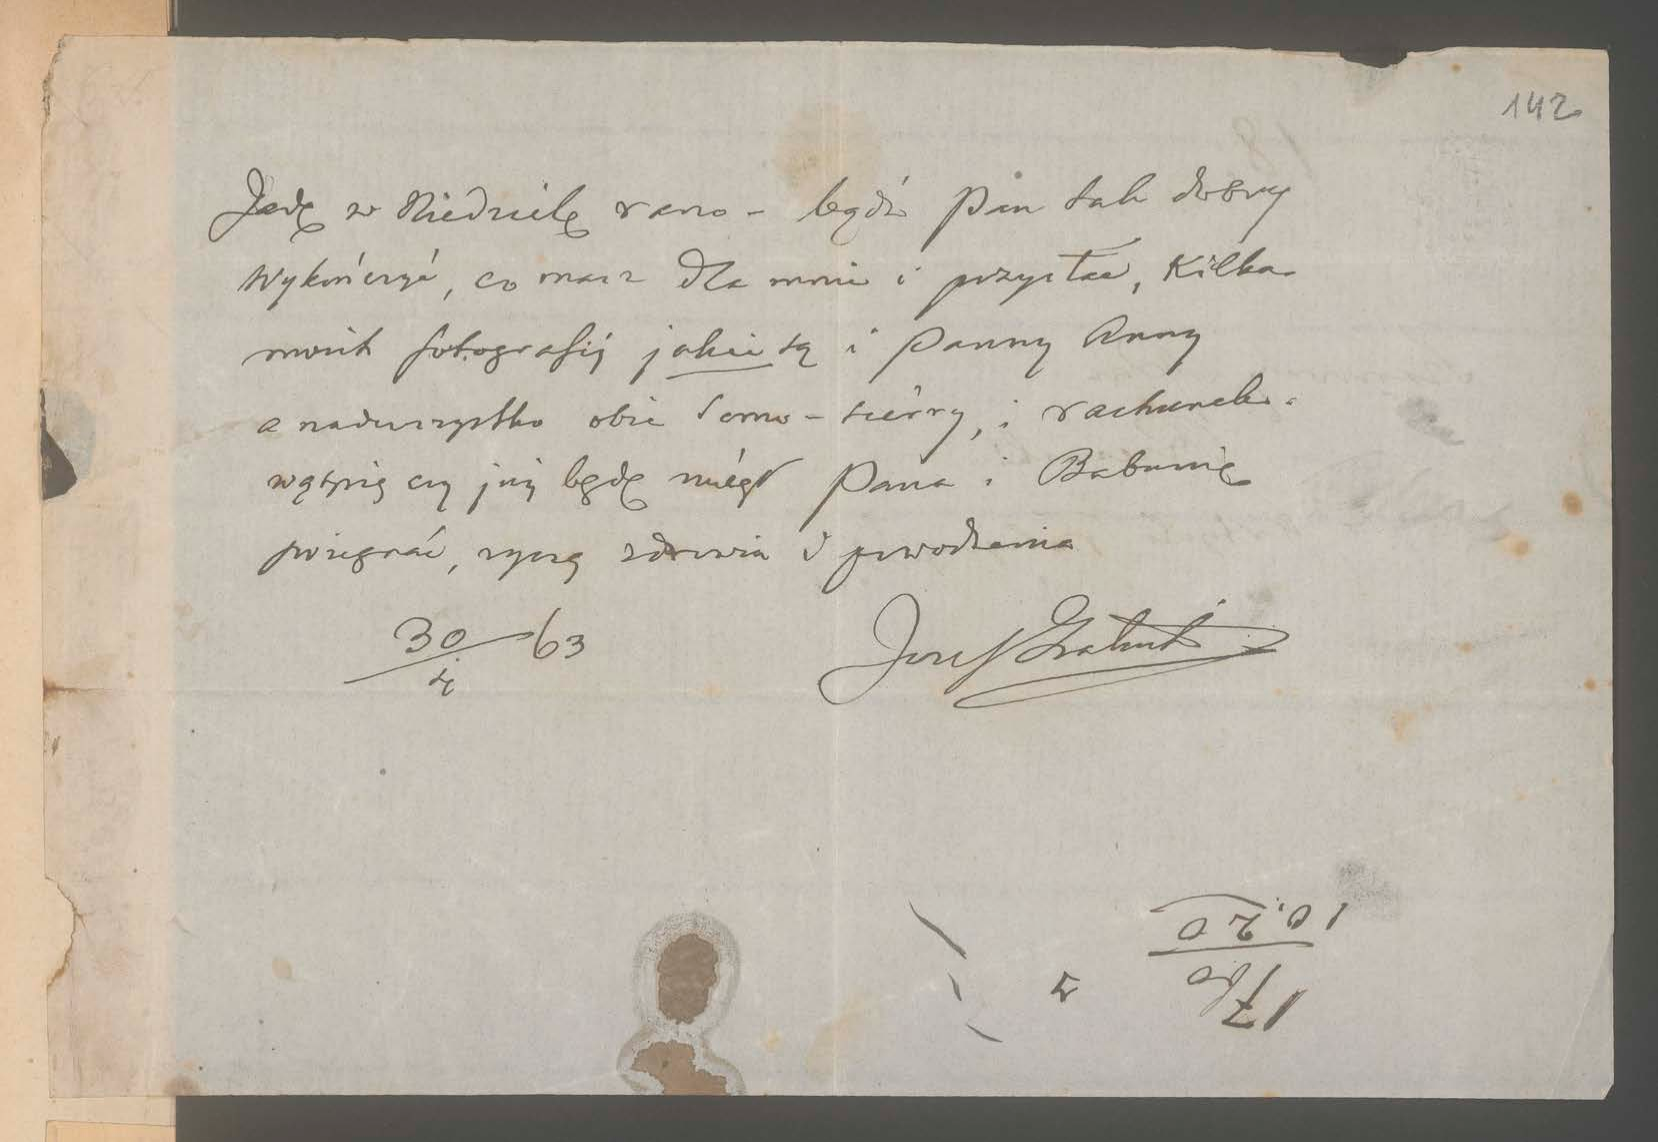 142
Jadę w Niedzielę rano – bądź Pan tak dobry
wykończyć, co masz dla mnie i przysłać, Kilka
moich fotografij jakie są i Panny Anny
a nadwszystko obie Somo-sierry, i rachunek.
wątpię czy już będę mógł Pana i Babunię
pożegnać, życzę zdrowia i powodzenia
30/4 63
Józef
10.20